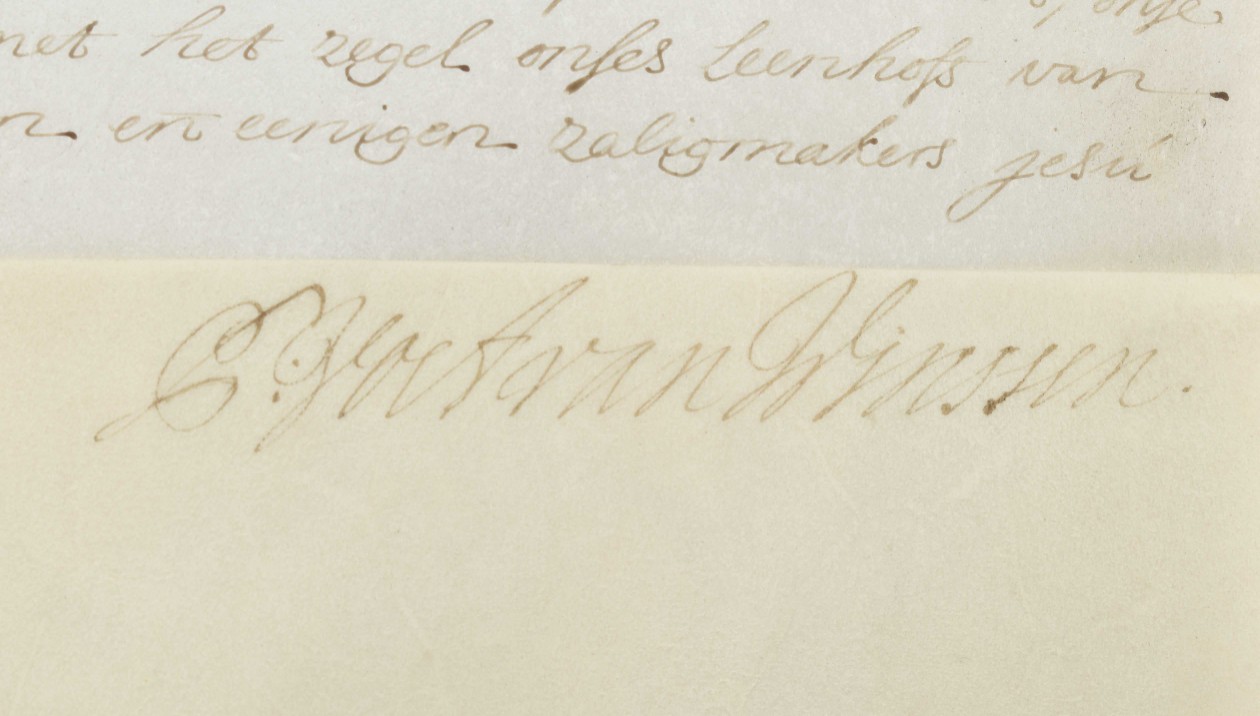 onse
met het zegel onses Leenhofs van
n en eenigen zaligmakers jesú
C. Voet van Winssen.